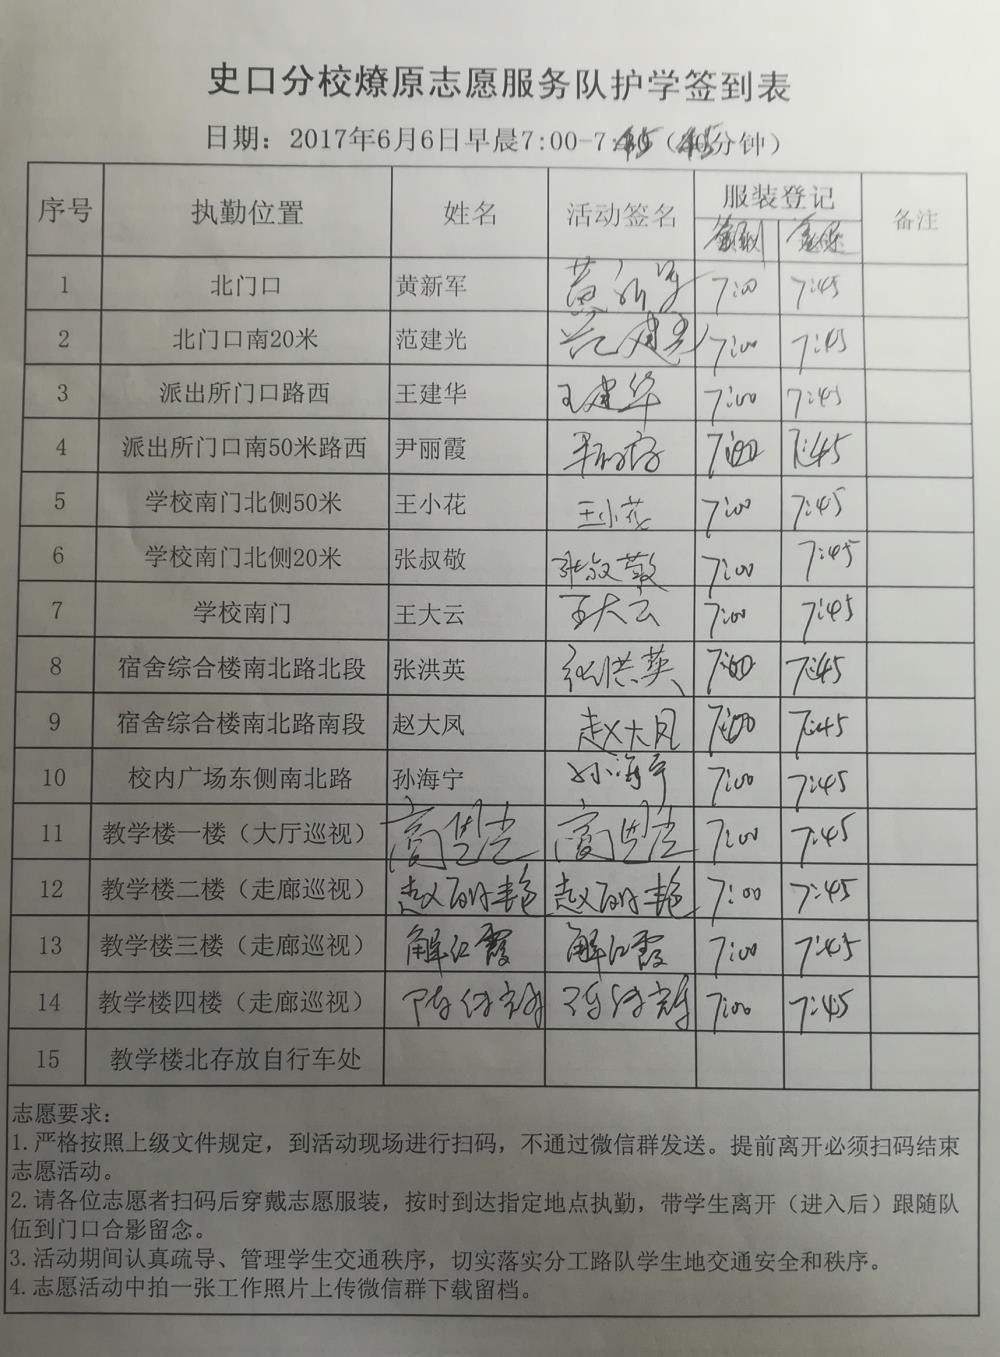 史口分校燎原志愿服务队护学签到表
日期：2017年6月6日早晨7:00-7:45（45分钟）
序号 执勤位置 姓名 活动签名 服装登记 备注
签到
1 北门口 黄新军 黄新军 7:00 7:45
2 北门口南20米 范建光 范建光 7:00 7:45
3 派出所门口路西 王建华 王建华 7:00 7:45
4 派出所门口南50米路西 尹丽霞 尹丽霞 7:00 7:45
5 学校南门北侧50米 王小花 王小花 7:00 7:45
6 学校南门北侧20米 张叔敬 张叔敬 7:00 7:45
7 学校南门 王大云 王大云 7:00 7:45
8 宿舍综合楼南北路北段 张洪英 张洪英 7:00 7:45
9 宿舍综合楼南北路南段 赵大凤 赵大凤 7:00 7:45
10 校内广场东侧南北路 孙海宁 孙海宁 7:00 7:45
11 教学楼一楼（大厅巡视） 7:00 7:45
12 教学楼二楼（走廊巡视） 7:00 7:45
13 教学楼三楼（走廊巡视） 解红霞 解红霞 7:00 7:45
14 教学楼四楼（走廊巡视） 7:00 7:45
15 教学楼北存放自行车处
志愿要求：
1.严格按照上级文件规定，到活动现场进行扫码，不通过微信群发送。提前离开必须扫码结束
志愿活动。
2.请各位志愿者扫码后穿戴志愿服装，按时到达指定地点执勤，带学生离开（进入后）跟随队
伍到门口合影留念。
3.活动期间认真疏导、管理学生交通秩序，切实落实分工路队学生地交通安全和秩序。
4.志愿活动中拍一张工作照片上传微信群下载留档。